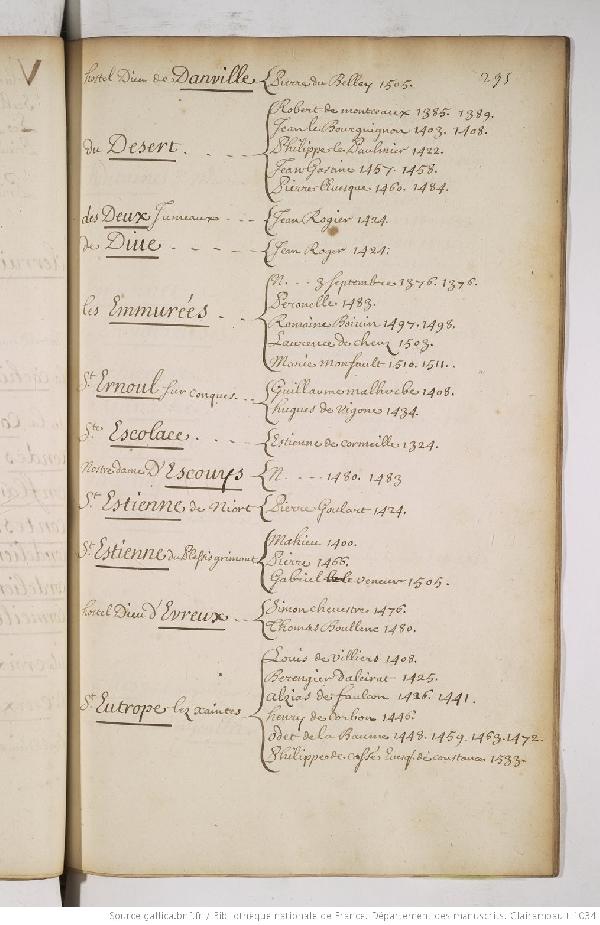 291
hostel Dieu de Danville { Pierre du Belley 1505.
du Desert. { Robert de montceaux 1385. 1389.
Jean le Bourguignon 1403. 1408.
Philippe le Paulmier 1422.
Jean Gascine 1457. 1458.
Pierre l'Euesque 1460. 1484.
des Deux Jumeaux { Jean Rogier 1424.
de Diue { Jean Roger 1424.
les Emmurées { N. 3 septembre 1376. 1376.
Peronelle 1483.
Romaine Boiuin 1497. 1498.
Laurence de 1503.
Marie monfault 1510. 1511.
St. Ernoul sur conques { Guillaume malherbe 1408.
hugues de Vigone 1434.
Ste Escolace. { Estienne de cormeille 1324.
Nostre dame D'Escouys { N. 1480. 1483
St. Estienne de Niort { Pierre Goulart 1424.
St. Estienne du Plessis grimoult { Mahieu 1400.
Pierre 1466.
Gabriel le veneur 1505.
hostel Dieu d'Evreux { Simon cheuestre 1476.
Thomas Boullenc 1480.
St. Eutrope lez xaintes { Louis de villiers 1408.
Berengier 1425.
Alzias de faulcon 1426. 1441.
henry de corbon 1446.
odet de la Baume 1448. 1459. 1463. 1472.
Philippe de cossé Euesq. de constance 1533.
Source gallica.bnf.fr / Bibliothèque nationale de France. Département des manuscrits. Clairambault 1034